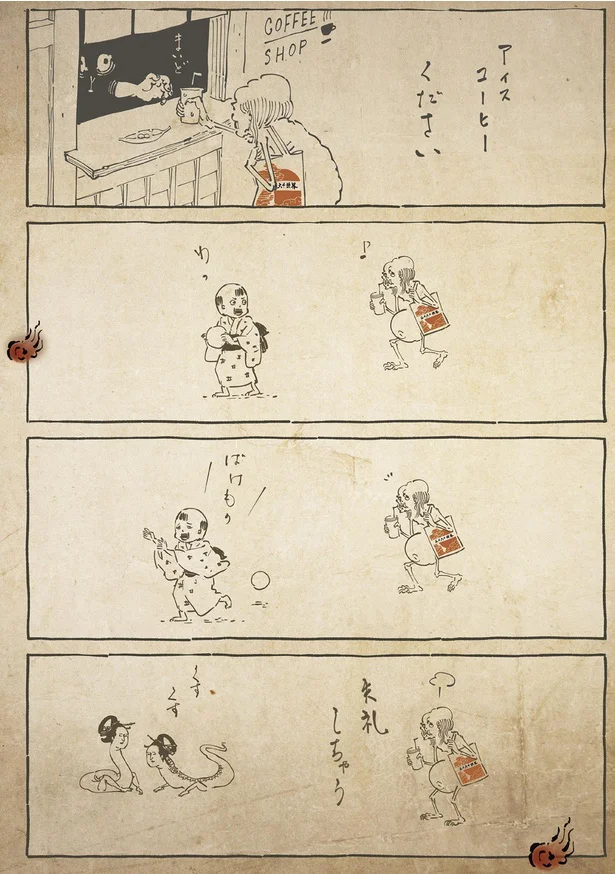 COFFEE
SHOP
アイス
コーヒー
ください
まいど
♪
わっ
ばけもの
失礼
しちゃう
くす
くす